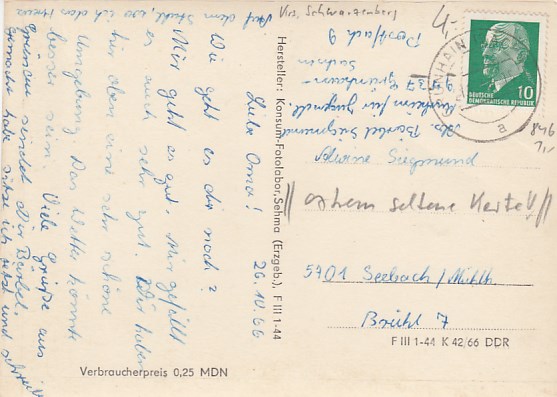 26.10.66
Liebe Oma!
Wie geht es dir noch?
Mir geht es gut, mir gefällt
es auch sehr gut. Wir haben
hier oben eine sehr schöne
Umgebung. Das Wetter könnte
besser sein. Viele Grüße aus
Grünhain sendet dir Bärbel.
Auf dem Stuhl, wo ich das Kreuz
gemacht habe sitze ich jetzt und
Hersteller: Konsum-Fotolabor, Sehma (Erzgeb.), F III 1-44
Verbraucherpreis 0,25 MDN
Krs. Schwarzenberg
Postfach 9
4,-
Abs. Bärbel Siegmund
9437 Grünhain
Sachsen
Siegmund
DEUTSCHE
DEMOKRATISCHE REPUBLIK
10
a
846
7,-
extrem seltene Karte!!
5701 Seebach/Mühlh.
Brühl 7
F III 1-44 K 42/66 DDR